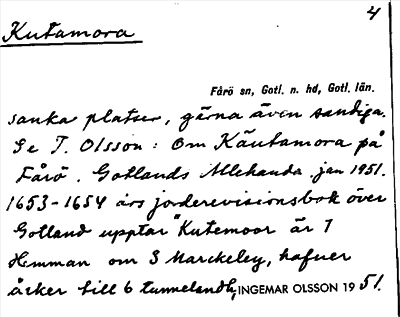 4
Kutamora
Fårö sn, Gotl. n. hd, Gotl. län.
sanka platser, gärna även sandiga.
Se T. Olsson: Om Käutamora på
Fårö. Gotlands Allehanda jan 1951.
1653-1654 års jorderevisionsbok över
Gotland upptar "Kutemoor är 1
Hemman om 3 Marckeley, hafuer
åcker till 6 tunneland", INGEMAR OLSSON 1951.